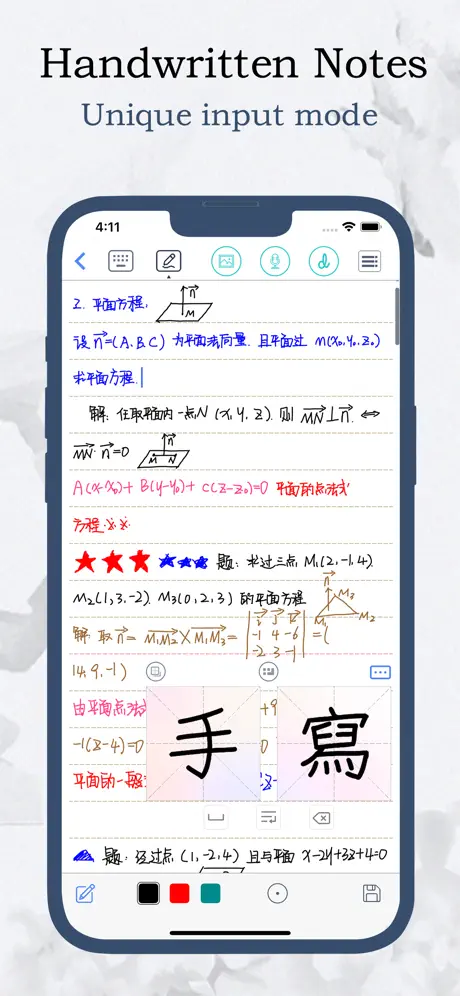 Handwritten Notes
Unique input mode
4:11
2. 平面方程.
n
M
设 n=(A.B.C) 为平面法向量. 且平面过 M(x₀,y₀,z₀)
求平面方程.
解: 任取平面内一点N (x, y, z). 则 MN⊥n. ⇔
MN·n=0
n
M N
A(x-x₀)+ B(y-y₀)+ C(z-z₀)=0 平面的点法式
方程
题: 求过三点 M₁(2,-1,4).
M₂(-1,3,-2). M₃(0,2,3) 的平面方程
n
M₃
M₁ M₂
解: 取 n= M₁M₂×M₁M₃= | i j k -1 4 -6 -2 3 -1 | =(
14,9,-1)
由平面点法式
+9
-1(z-4)=0
0
手 寫
平面的一般
题: 经过点 (1,-2,4) 且与平面 x-2y+3z+4=0